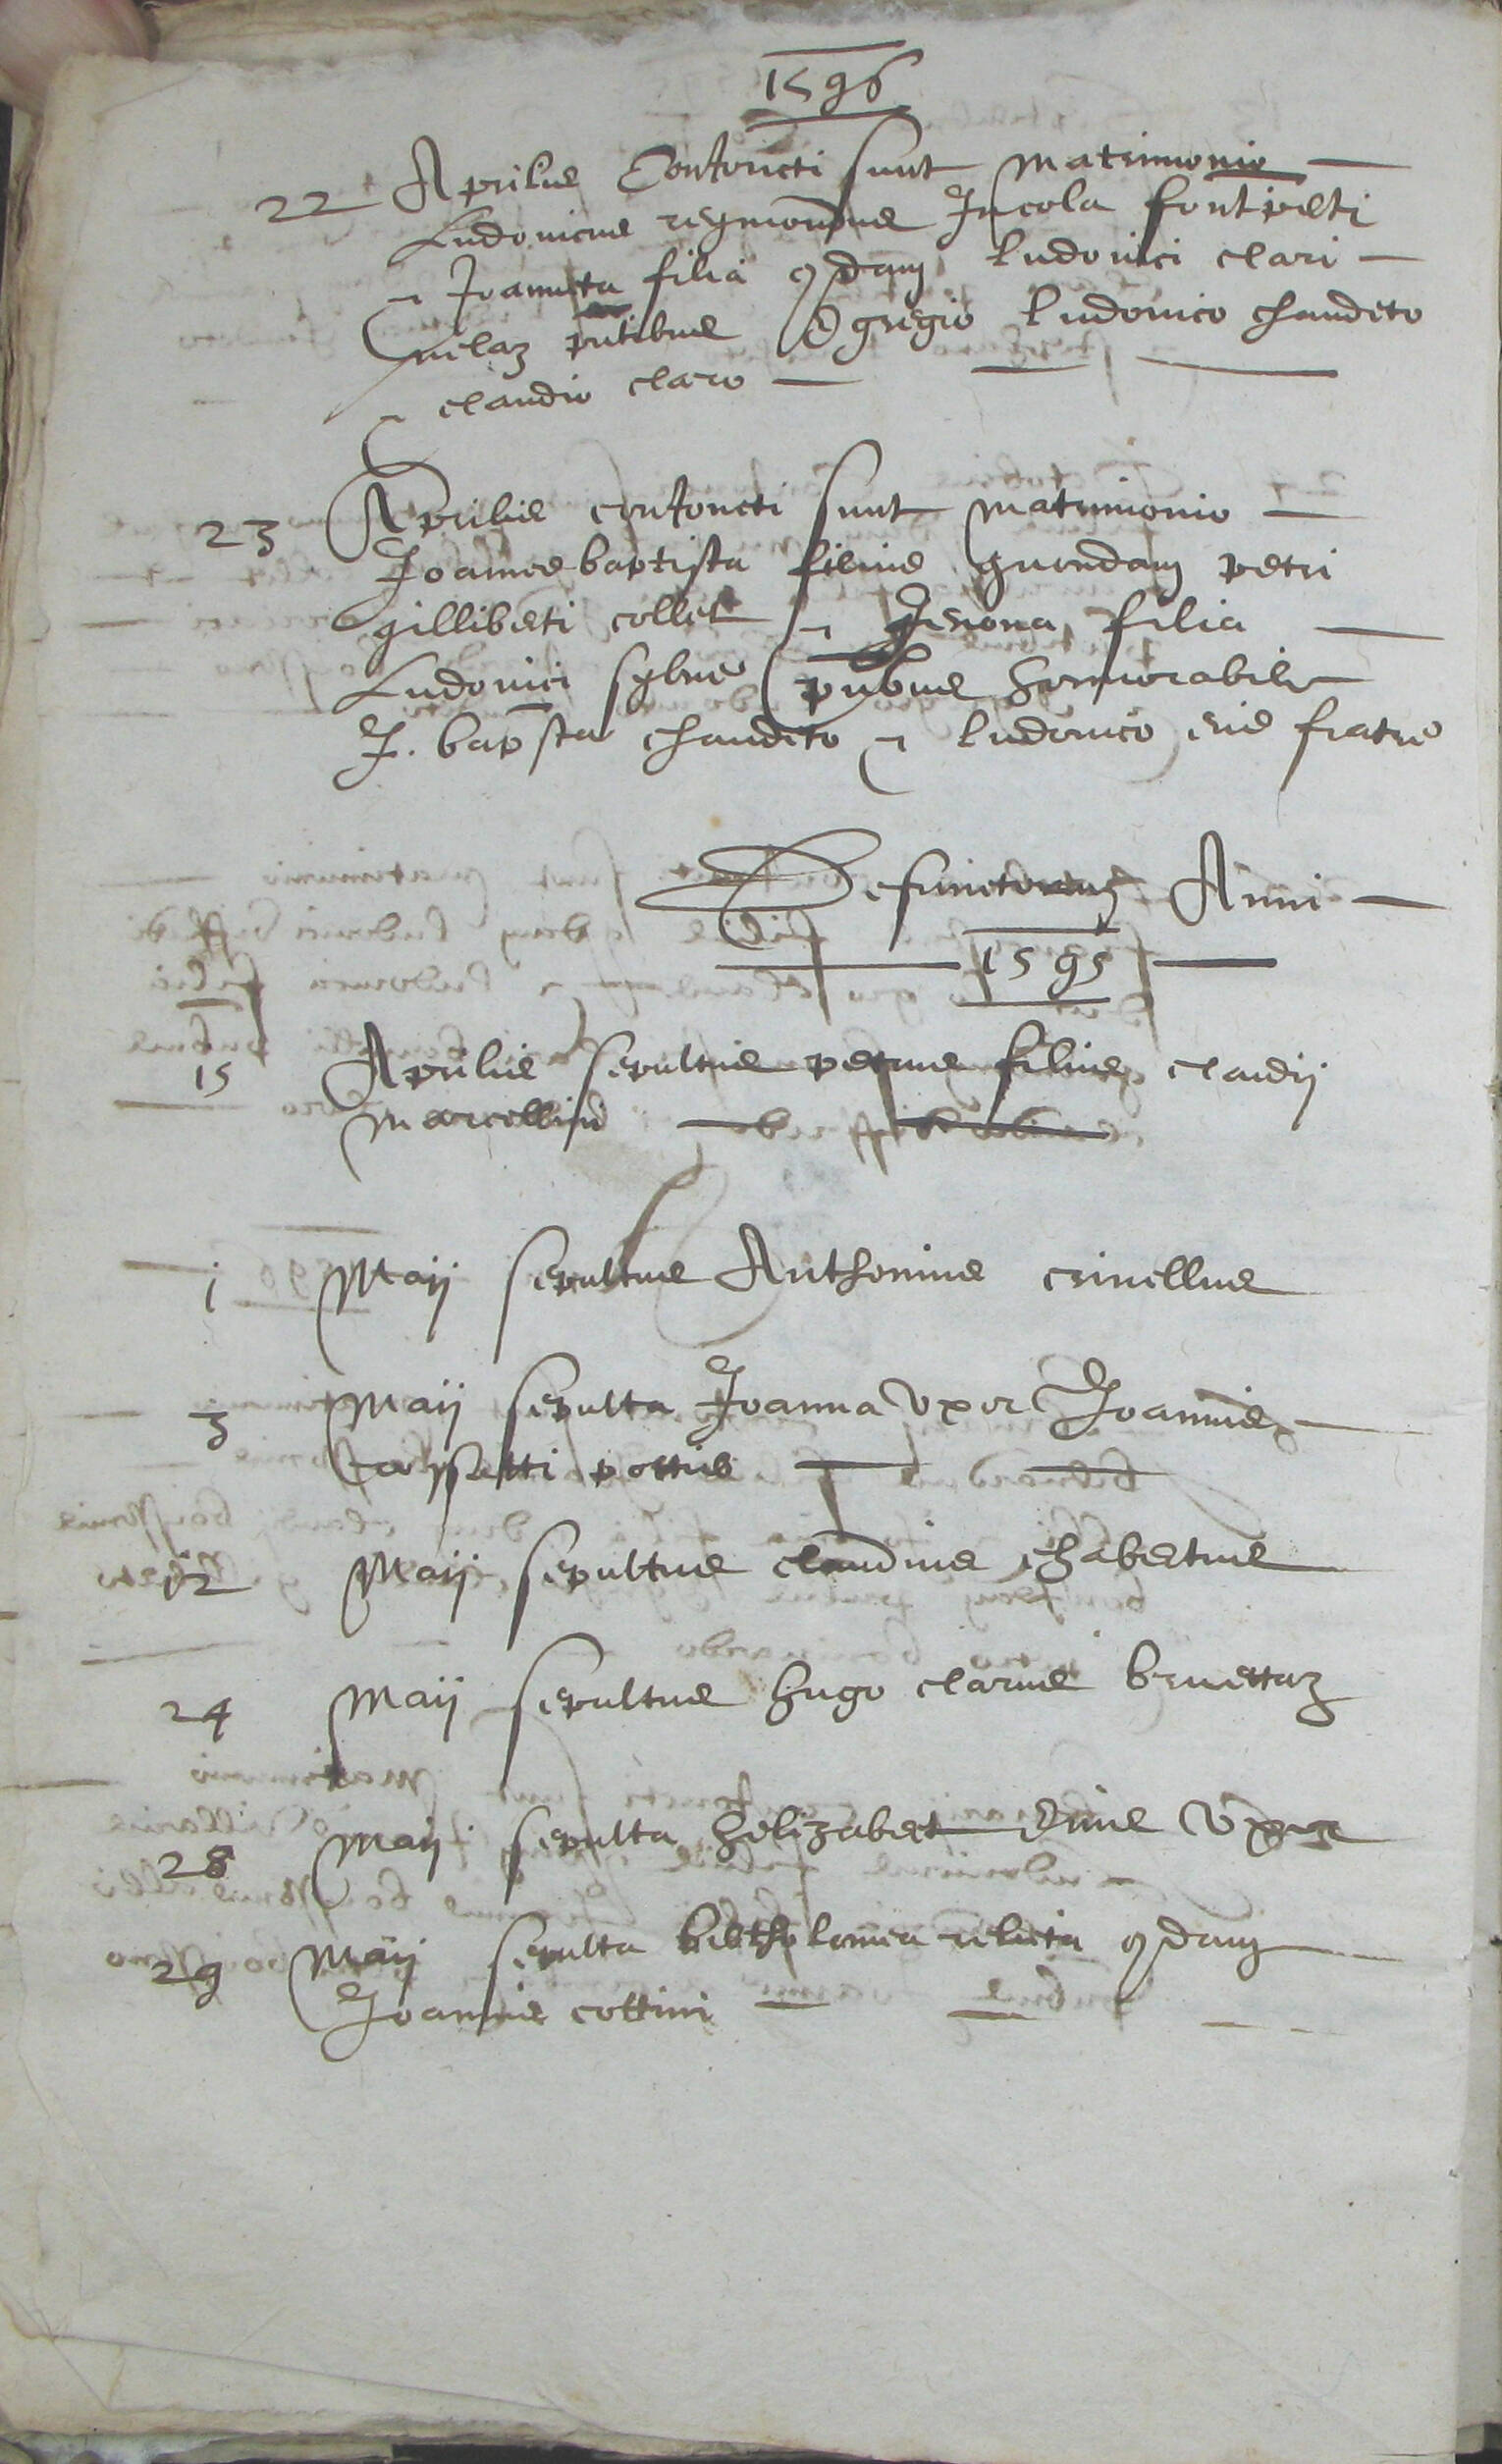 1596
22 Aprilis Conjoncti sunt matrimonio
Ludovicus reymondus Incola
et Joanneta filia qdam ludovici clari
velaz pntibus Egregio ludovico chandeto
et claudio claro
23 Aprilis conjoncti sunt matrimonio
Joannes baptista filius quondam petri
gilliberti collet et filia
Ludovici sylve pntibus honnorabili
J. bapsta chandeto et ludovico eius fratre
Defunctorum Anni
1595
15 Aprilis sepultus petrus filius claudij
marcellini
1 Maij sepultus Anthonius crinellus
3 Maij sepulta Joanna Uxor Joannis
pottier
12 Maij sepultus claudius chabertus
24 Maij sepultus hugo clarus bruettaz
28 Maij sepulta helizabet Uxor
29 Maij sepulta bertholomea relicta qdam
Joannis cottini